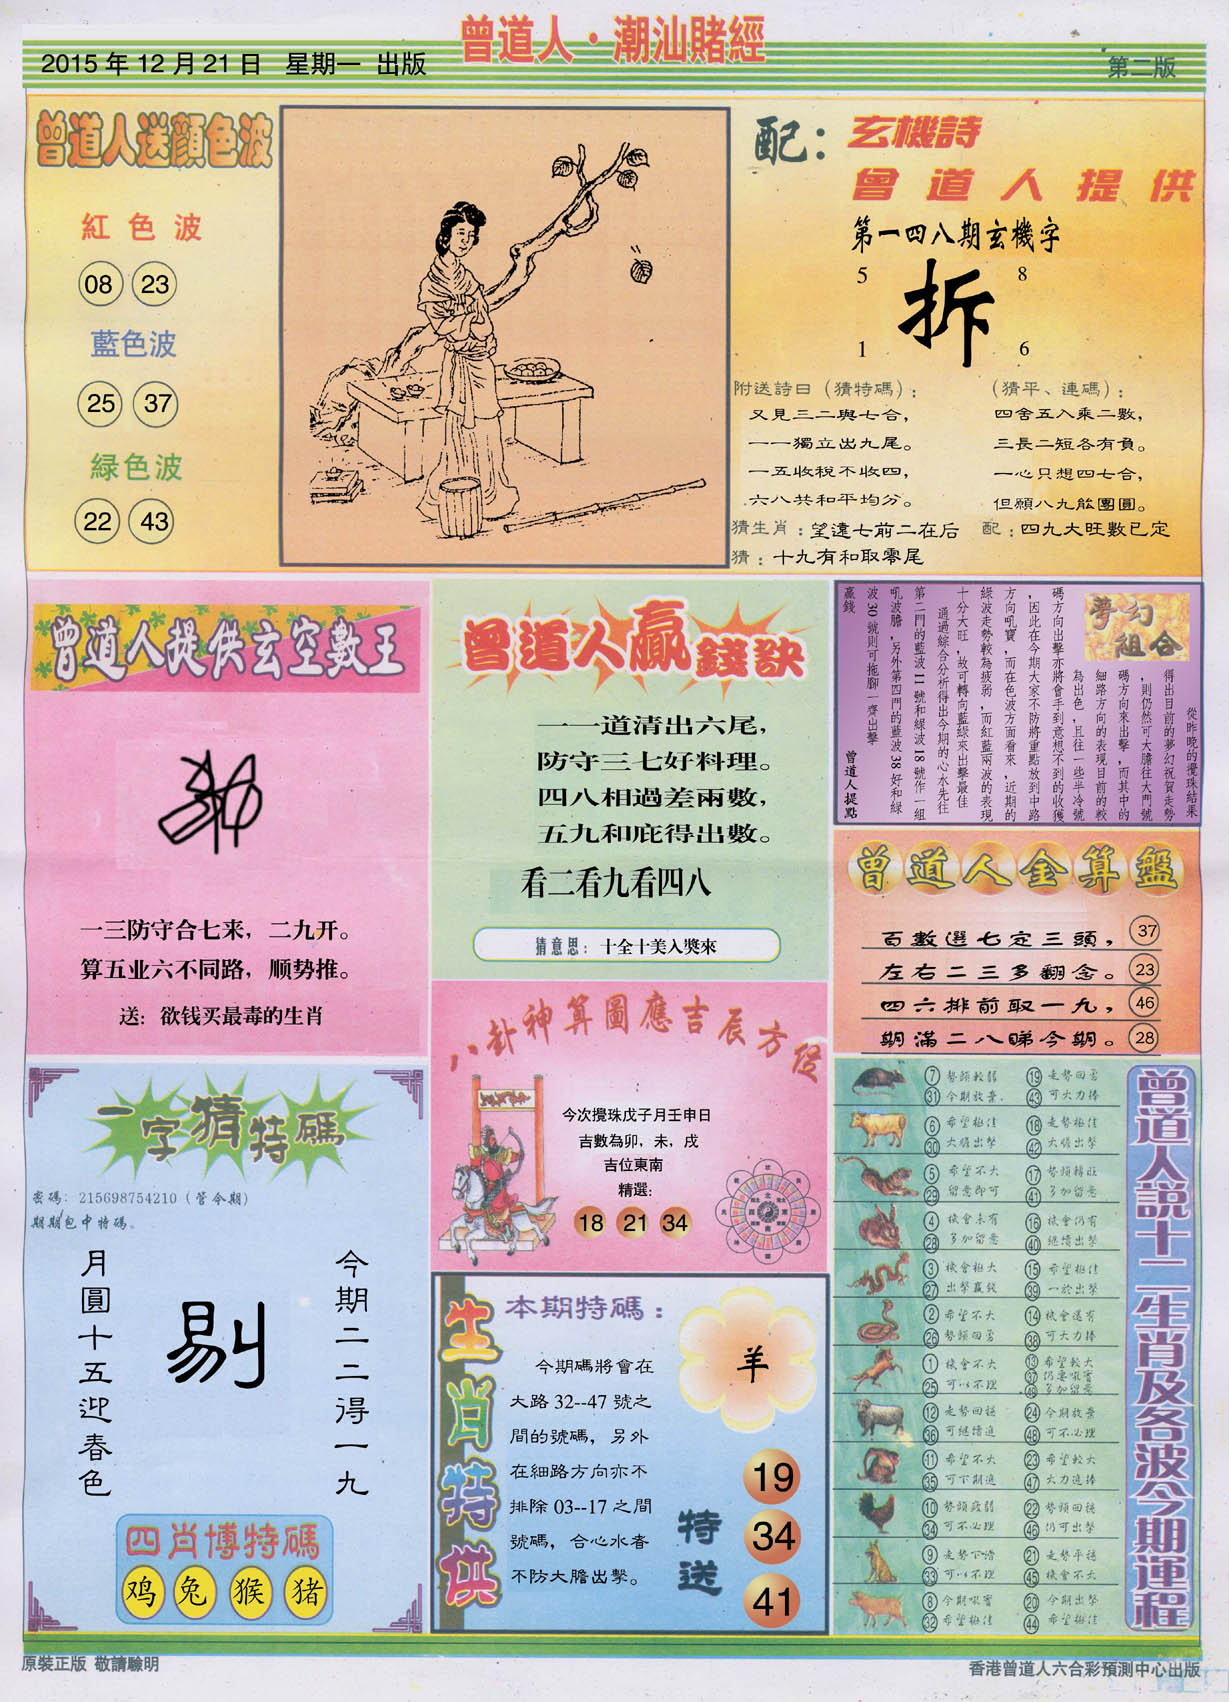 曾道人·潮汕賭經
2015年12月21日 星期一 出版
第二版
曾道人送顏色波
紅色波
08 23
藍色波
25 37
緑色波
22 43
配：玄機詩
曾道人提供
第一四八期玄機字
5 8
拆
1 6
附送詩曰（猜特碼）：
又見三二與七合，
一一獨立出九尾。
一五收稅不收四，
六八共和平均分。
（猜平、連碼）：
四舍五入乘二數，
三長二短各有負。
一心只想四七合，
但願八九能團圓。
猜生肖：望遠七前二在后
配：四九大旺數已定
猜：十九有和取零尾
曾道人提供玄空數王
一三防守合七来，二九开。
算五业六不同路，顺势推。
送：欲钱买最毒的生肖
曾道人贏錢訣
一一道清出六尾，
防守三七好料理。
四八相過差兩數，
五九和庇得出數。
看二看九看四八
猜意思：十全十美入獎來
夢幻組合
從昨晚的攪珠結果
得出目前的夢幻祝賀走勢
，則仍然可大膽往大門號
碼方向來出擊，而其中的
細路方向的表現目前的較
為出色，且往一些半冷號
碼方向出擊亦將會手到意想不到的收獲
，因此在今期大家不防將重點放到中路
方向吼寶，而在色波方面看來，近期的
綠波走勢較為疲弱，而紅藍兩波的表現
十分大旺，故可轉向藍綠來出擊最佳
通過綜合分析得出今期的心水先往
第二門的藍波11號和綠波18號作一組
吼波膽，另外第四門的藍波38好和綠
波30號則可拖腳一齊出擊
贏錢
曾道人提點
曾道人金算盤
百數選七定三頭， 37
左右二三多翻念。 23
四六排前取一九， 46
期滿二八睇今期。 28
一字猜特碼
密碼：215698754210（管今期）
期期包中特碼。
今期二二得一九
剔
月圓十五迎春色
四肖博特碼
鸡 兔 猴 猪
八卦神算圖應吉辰方位
今次攪珠戊子月壬申日
吉數為卯，未，戌
吉位東南
精選：
18 21 34
生肖特供
本期特碼：
今期碼將會在
大路32--47號之
間的號碼，另外
在細路方向亦不
排除03--17之間
號碼，合心水者
不防大膽出擊。
羊
特送
19
34
41
曾道人説十二生肖及各波今期運程
7 勢頭較弱 19 走勢回勇
31 今期放棄 43 可大力捧
6 希望極佳 18 走勢極佳
30 大膽出擊 42 大膽出擊
5 希望不大 17 勢頭轉旺
29 留意即可 41 多加留意
4 機會未有 16 機會仍有
28 多加留意 40 繼續出擊
3 機會極大 15 希望極佳
27 出擊贏錢 39 一於出擊
2 希望不大 14 機會還有
26 勢頭回勇 38 可大力捧
1 機會不大 13 希望較大
25 可以不理 37 仍要吸寶
49 多加留意
12 走勢回穩 24 今期放棄
36 可繼續追 48 可不必理
11 希望不大 23 希望較大
35 可下期追 47 大力追捧
10 勢頭疲弱 22 勢頭回穩
34 可不必理 46 仍可出擊
9 走勢下滑 21 走勢平穩
33 可以不理 45 機會不大
8 今期吸寶 20 今期出擊
32 希望極佳 44 希望極佳
原裝正版 敬請驗明
香港曾道人六合彩預測中心出版